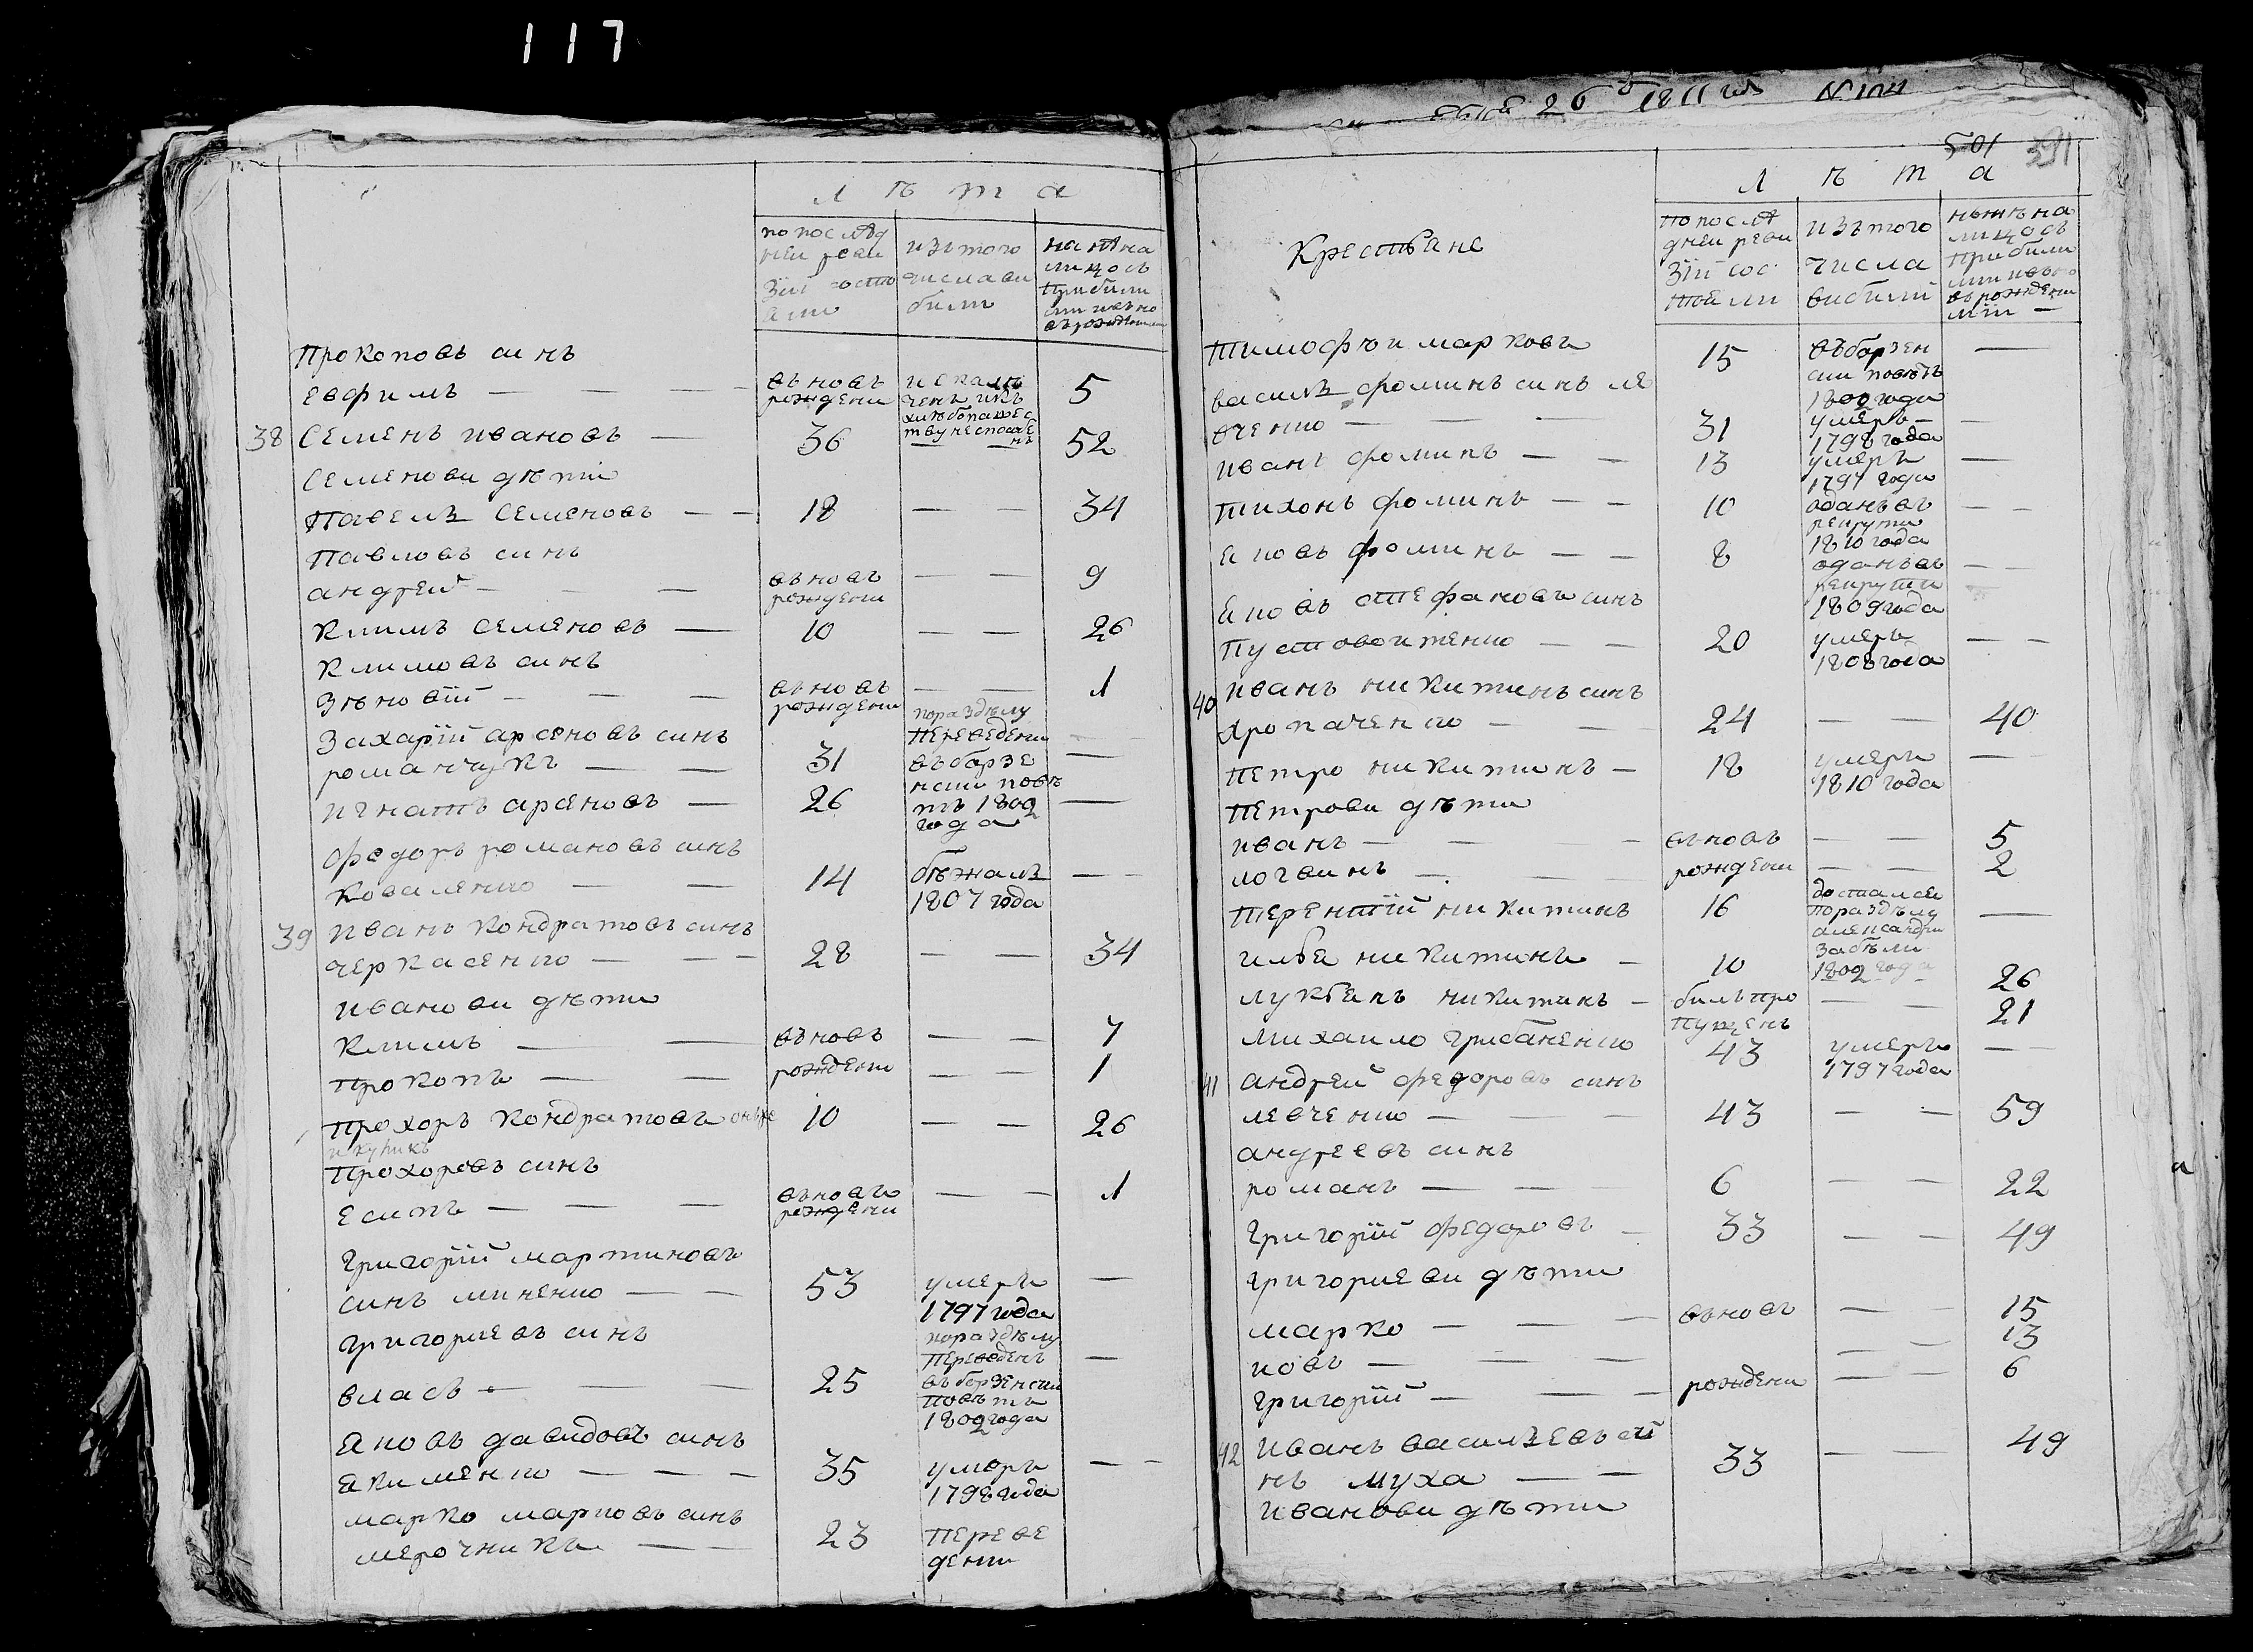 117
Л ѣ т а
по послѣд
ней реви
зіи состо
али
изъ того
числа ви
били
на лицо съ
прибили
ми и въно
въ рожден
Прокоповъ синъ
Евфимъ — — — въновь рождени 5
38 Семенъ Ивановъ — 36 — — 52
Семенови дѣти
Павелъ Семеновъ — — 18 — — 34
Павловъ синъ
Андрей — — — въновь рождени — — 9
Климъ Семеновъ — 10 — — 26
Климовъ синъ
Зѣновій — — — въновь рождени — — 1
Захарій Арсеновъ синъ
Романчукъ — — 31 по раздѣлу переведени въ борзе —
Игнатъ Арсеновъ — 26 нски повѣ тъ 1802 года —
Федоръ Романовъ синъ
Коваленко — — 14 бѣжалъ 1807 года — —
39 Иванъ Кондратовъ синъ
Черкасенко — — — 28 — — 34
Иванови дѣти
Климъ — — въновь — — 7
Прокопъ — — рождени — — 1
Прохоръ Кондратовъ онъ же 10 — — 26
и купикъ
Прохоровъ синъ
Есипъ — — — въновь рождени — — 1
Григорій Мартиновъ
синъ Миненко — — 53 умеръ 1797 года —
Григориевъ синъ
Власъ — — — 25 по раздѣлу переведенъ въ борзенски повѣтъ 1802 года —
Яковъ Давидовъ синъ
Якименко — — — 35 умеръ 1798 года — —
Марко Марковъ синъ
Мерочникъ — — 23 переве дени
1811 №
501
Л ѣ т а
Крестьяне
по послѣ
дней реви
зіи сос
тоели
изъ того
числа
вибили
нинѣ на
лицо съ
прибили
ми и въно
въ рожденн
ми —
Тимофѣй Марковъ 15 въ борзен ски повѣтъ 1802 года —
Василъ Фоминъ синъ Ле
вченко — — — 31 умеръ 1798 года —
Иванъ Фоминъ — — 13 умеръ 1797 года —
Тихонъ Фоминъ — — 10 оданъ въ рекрути 1810 года — —
Яковъ Фоминъ — — 8 оданъ въ рекрути 1809 года — —
Яковъ Стефановъ синъ
Пустовойтенко — — 20 умеръ 1808 года — —
40 Иванъ Никитинъ синъ
Хропаченко — — 24 — — 40
Петро Никитинъ — 18 умеръ 1810 года —
Петрови дѣти
Иванъ — — — въновь — — 5
Логвинъ — — рождени — — 2
Терентій Никитинъ 16 досталсе по раздѣлу александри забѣли 1802 года —
Илья Никитинъ — 10 26
Лукьянъ Никитинъ — билъ про пущенъ — — 21
Михайло Грибаненко 43 умеръ 1797 года —
41 Андрей Федоровъ синъ
Левченко — — — 43 — — 59
Андреевъ синъ
Романъ — — — 6 — — 22
Григорій Федоровъ — 33 — — 49
Григориеви дѣти
Марко — — — въновь — — 15
Иовъ — — — — — 13
Григорій — — — рождени — — 6
42 Иванъ Василъевъ си
нъ Муха — — 33 — — 49
Иванови дѣти